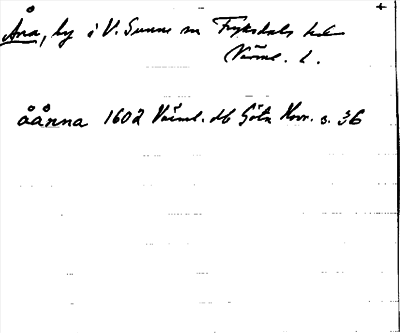 Åna, by i V. Sunne sn Fryksdals hd
Värml. l.
åånna 1602 Värml. db Göta Hovr. s. 36